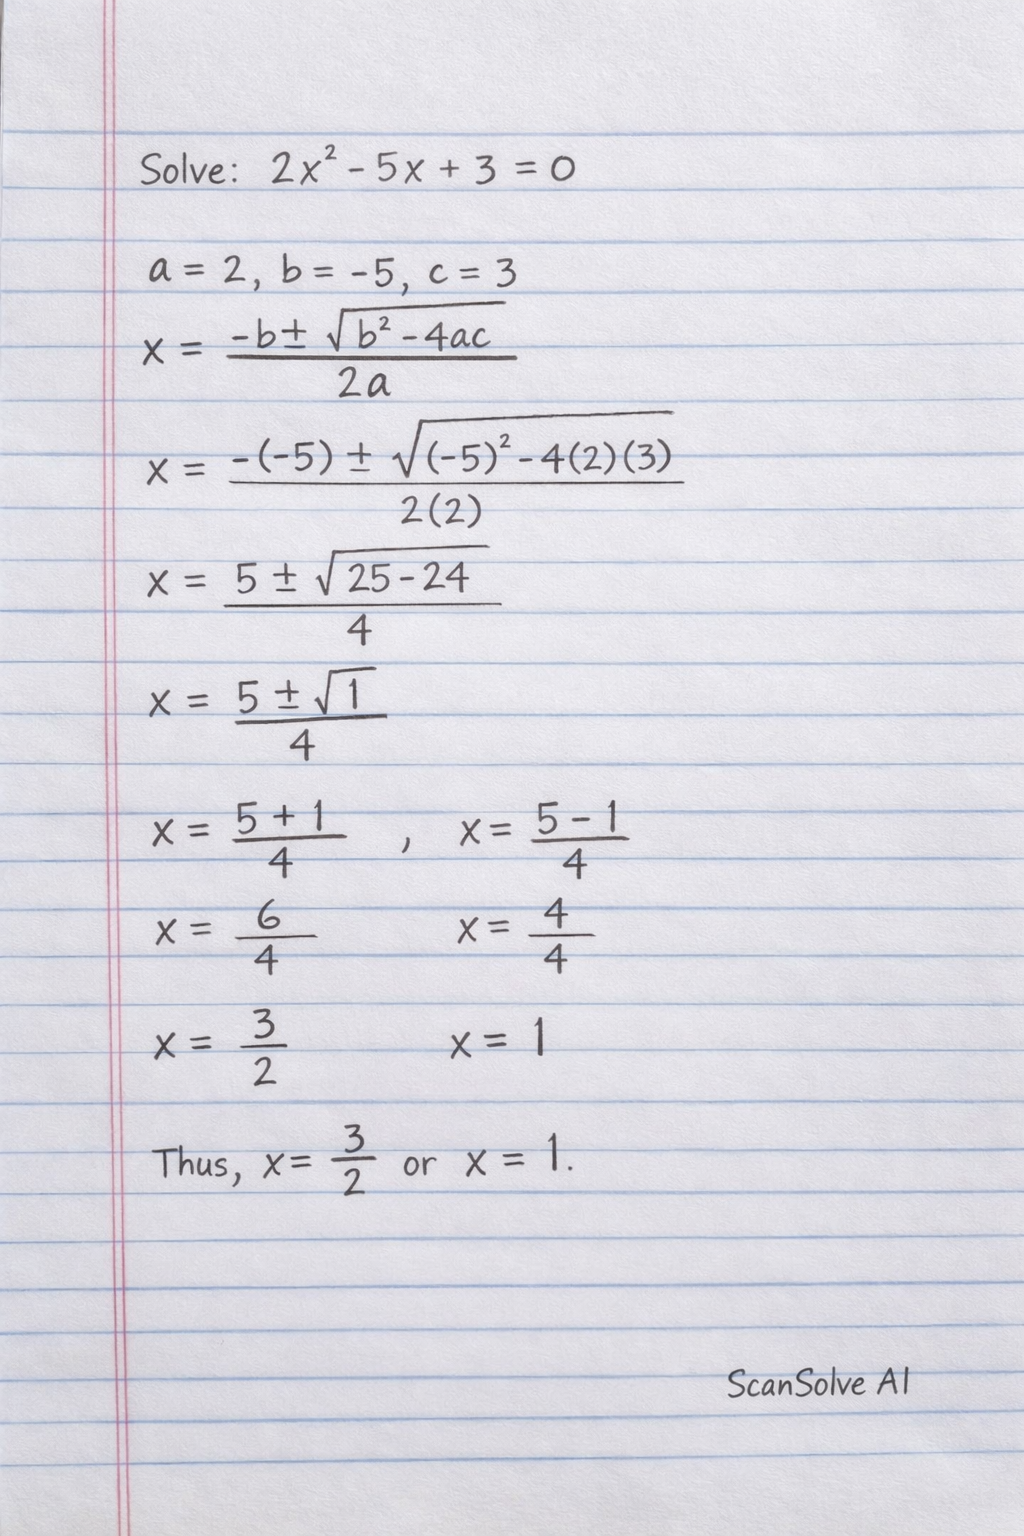 Solve: 2x² - 5x + 3 = 0
a = 2, b = -5, c = 3
x = (-b ± √(b² - 4ac)) / 2a
x = (-(-5) ± √((-5)² - 4(2)(3))) / 2(2)
x = (5 ± √(25 - 24)) / 4
x = (5 ± √1) / 4
x = (5 + 1) / 4 , x = (5 - 1) / 4
x = 6/4 x = 4/4
x = 3/2 x = 1
Thus, x = 3/2 or x = 1.
ScanSolve AI